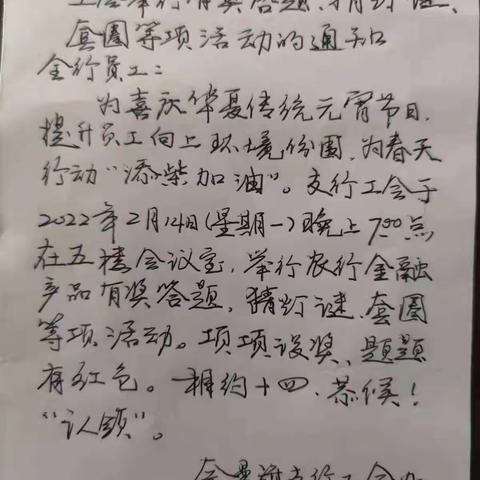 工会举行有奖答题、猜灯谜、
套圈等项活动的通知
全行员工：
为喜庆华夏传统元宵节日，
提升员工向上环境份围，为春天
行动“添柴加油”。支行工会于
2022年2月14日(星期一)晚上7:00点
在五楼会议室，举行农行金融
产品有奖答题，猜灯谜、套圈
等项活动。项项设奖、题题
有红包。相约十四，恭候！
“认领”。
支行工会